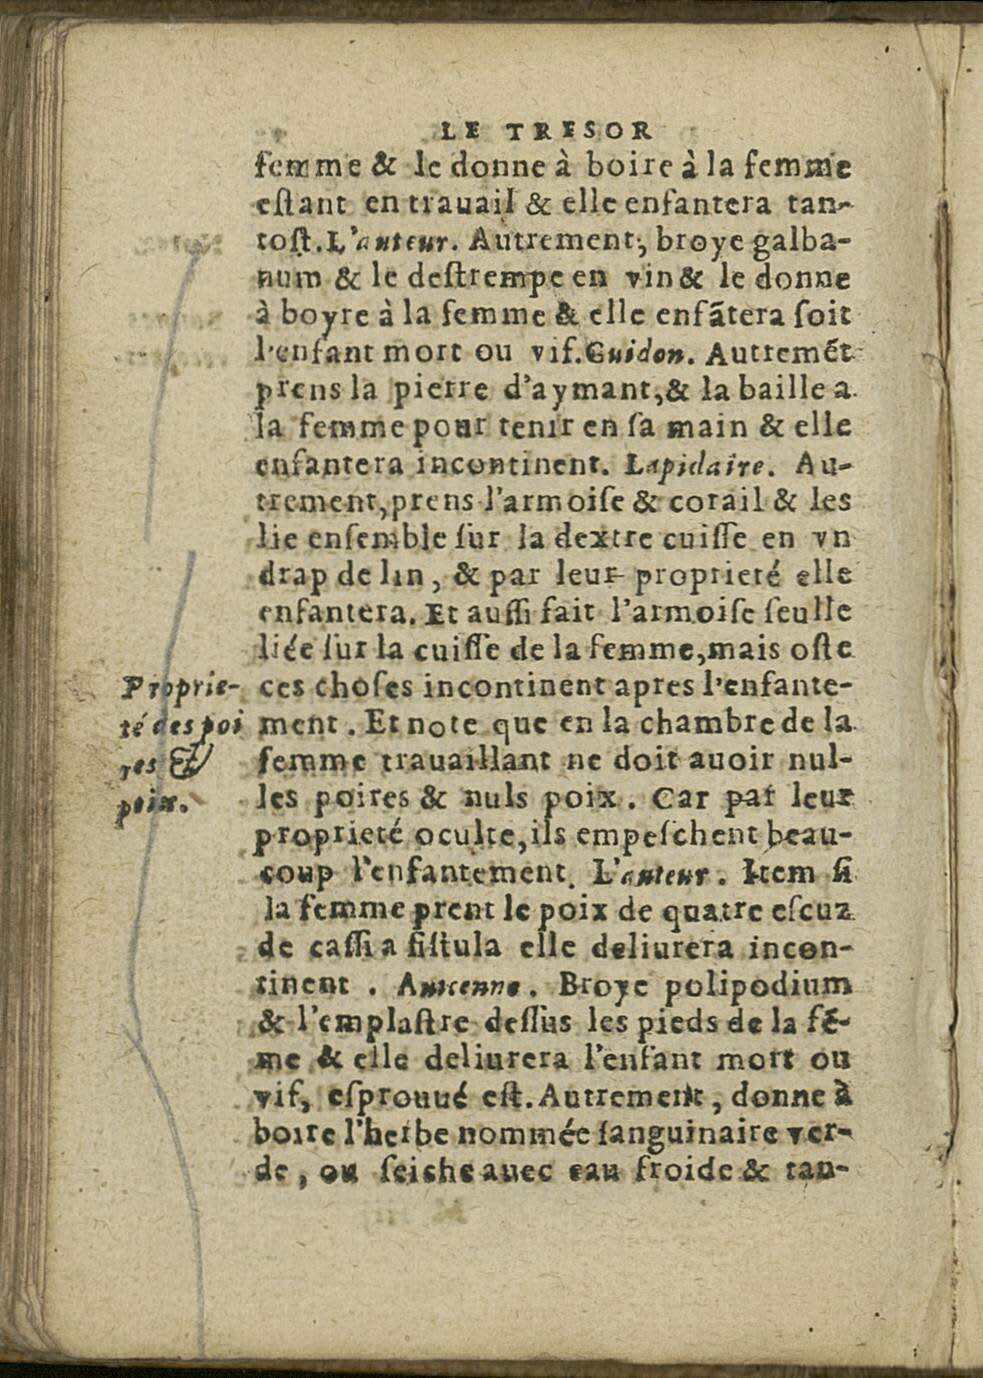 LE TRESOR
femme & le donne à boire à la femme
eſtant en trauail & elle enfantera tan-
toſt. L'auteur. Autrement, broye galba-
num & le deſtrempe en vin & le donne
à boyre à la femme & elle enfãtera ſoit
l'enfant mort ou vif. Guidon. Autremẽt
prens la pierre d'aymant, & la baille a
la femme pour tenir en ſa main & elle
enfantera incontinent. Lapidaire. Au-
trement, prens l'armoiſe & corail & les
lie enſemble ſur la dextre cuiſſe en vn
drap de lin, & par leur proprieté elle
enfantera. Et auſſi fait l'armoiſe ſeulle
liée ſur la cuiſſe de la femme, mais oſte
ces choſes incontinent apres l'enfante-
ment. Et note que en la chambre de la
femme trauaillant ne doit auoir nul-
les poires & nuls poix. Car par leur
proprieté oculte, ils empeſchent beau-
coup l'enfantement. L'auteur. Item ſi
la femme prent le poix de quatre eſcuz
de caſſia fiſtula elle deliurera incon-
tinent. Auicenne. Broye polipodium
& l'emplaſtre deſſus les pieds de la fẽ-
me & elle deliurera l'enfant mort ou
vif, eſprouué eſt. Autrement, donne à
boire l'herbe nommée ſanguinaire ver-
de, ou ſeiche auec eau froide & tan-
Proprie-
té des poi
res &
poix.